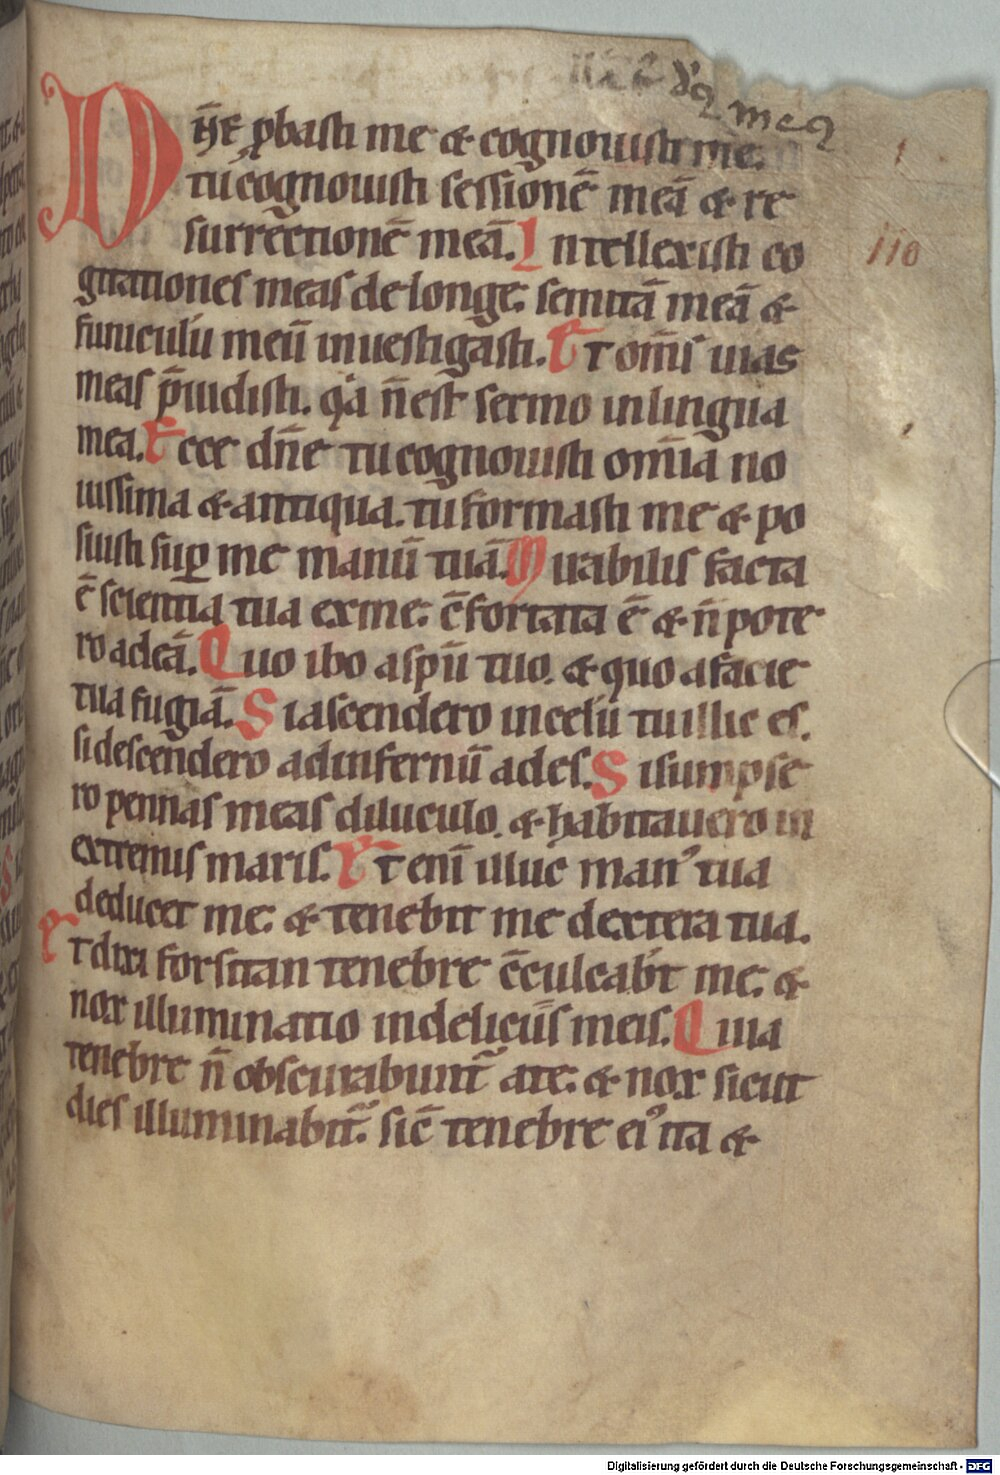 dꝰ meꝰ
Dn̄e ꝓbasti me & cognouisti me.
tu cognouisti sessionē meā & re
surrectionē meā. Intellexisti co
gitationes meas de longe: semitā meā &
funiculū meū inuestigasti. Et om̄s uias
meas p̄uidisti. q̇a n̄ est sermo in lingua
mea. Ecce dn̄e tu cognouisti om̄ia no
uissima & antiqua. tu formasti me & po
suisti suꝑ me manū tuā. Mirabilis facta
ē scientia tua ex me: c̄fortata ē & n̄ pote
ro ad eā. Quo ibo a spū tuo. & quo a facie
tua fugiā. Si ascendero in celū tu illic es.
si descendero ad infernū ades. Si sumpse
ro pennas meas diluculo. & habitauero in
extremis maris. Et eni illuc manꝰ tua
deducet me: & tenebit me dextera tua.
Et dixi forsitan tenebre c̄culcab̄t me: &
nox illuminatio in deliciis meis. Quia
tenebre n̄ obscurabunt᷑ a te: & nox sicut
dies illuminabit᷑. sic̄ tenebre eiꝰ ita &
110
Digitalisierung gefördert durch die Deutsche Forschungsgemeinschaft - DFG